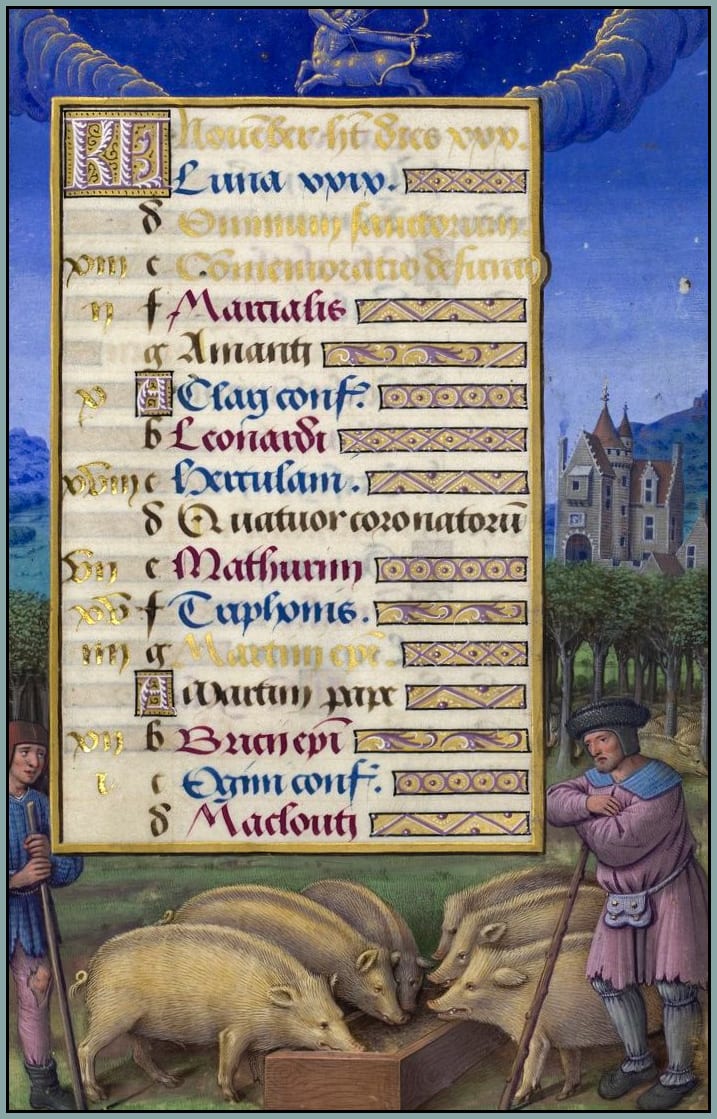 KL Nouēber ht dies xxx.
Luna xxix.
d Omnium sanctorum.
xiii e Comemoratio defunct
ii f Marcialis
g Amanti
x A Clay conf.
b Leonardi
xviii c Herculani.
d Quatuor coronatorū
vii e Mathurini
xv f Triphonis.
iiii g Martini epi.
A Martini pape
xii b Bricii epi
i c Ogini conf.
d Macloutj